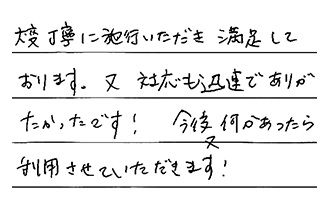 大変丁寧に施行いただき 満足して
おります。又 対応も迅速でありが
たかったです! 今後又何かあったら
利用させていただきます!